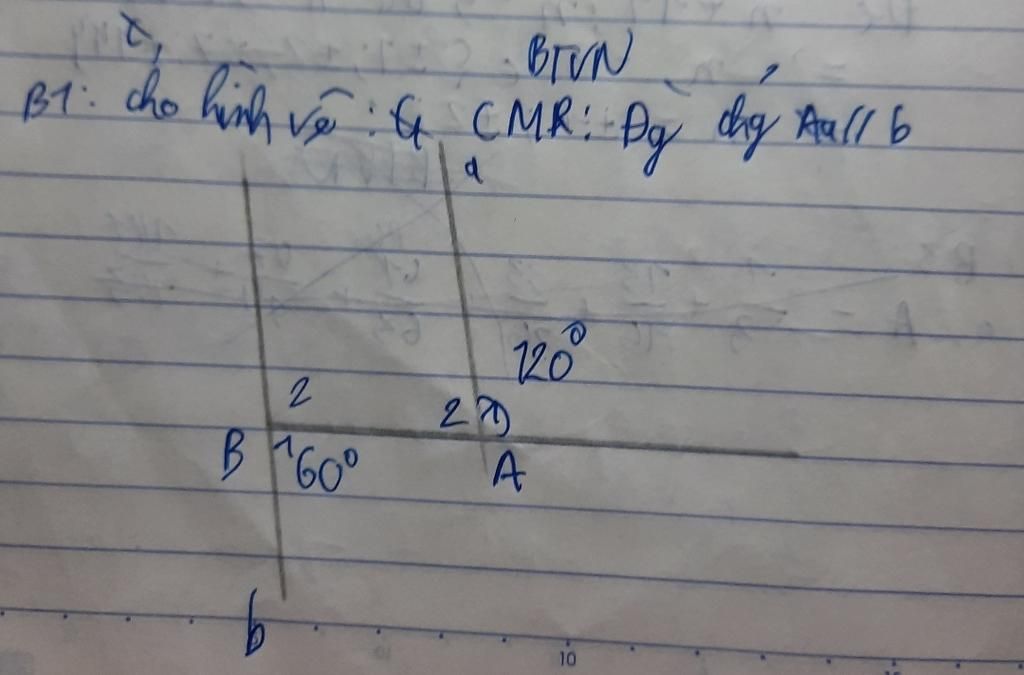 BTVN
B1: cho hình vẽ: CMR: Đg chg Aa // b
a
120°
2
2 1
B 1 60° A
b
10